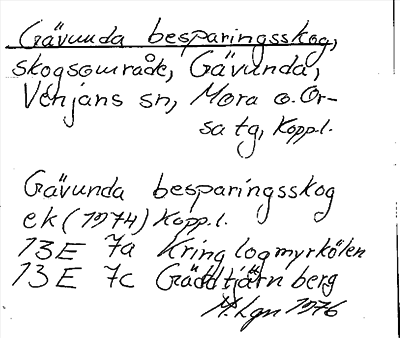 Gävunda besparingsskog,
skogsområde, Gävunda,
Venjans sn, Mora o. Or-
sa tg, Kopp.l.
Gävunda besparingsskog
ek (1974) Kopp.l.
13E 7a Kringlogmyrkölen
13E 7c Gäddtjärnberg
1976